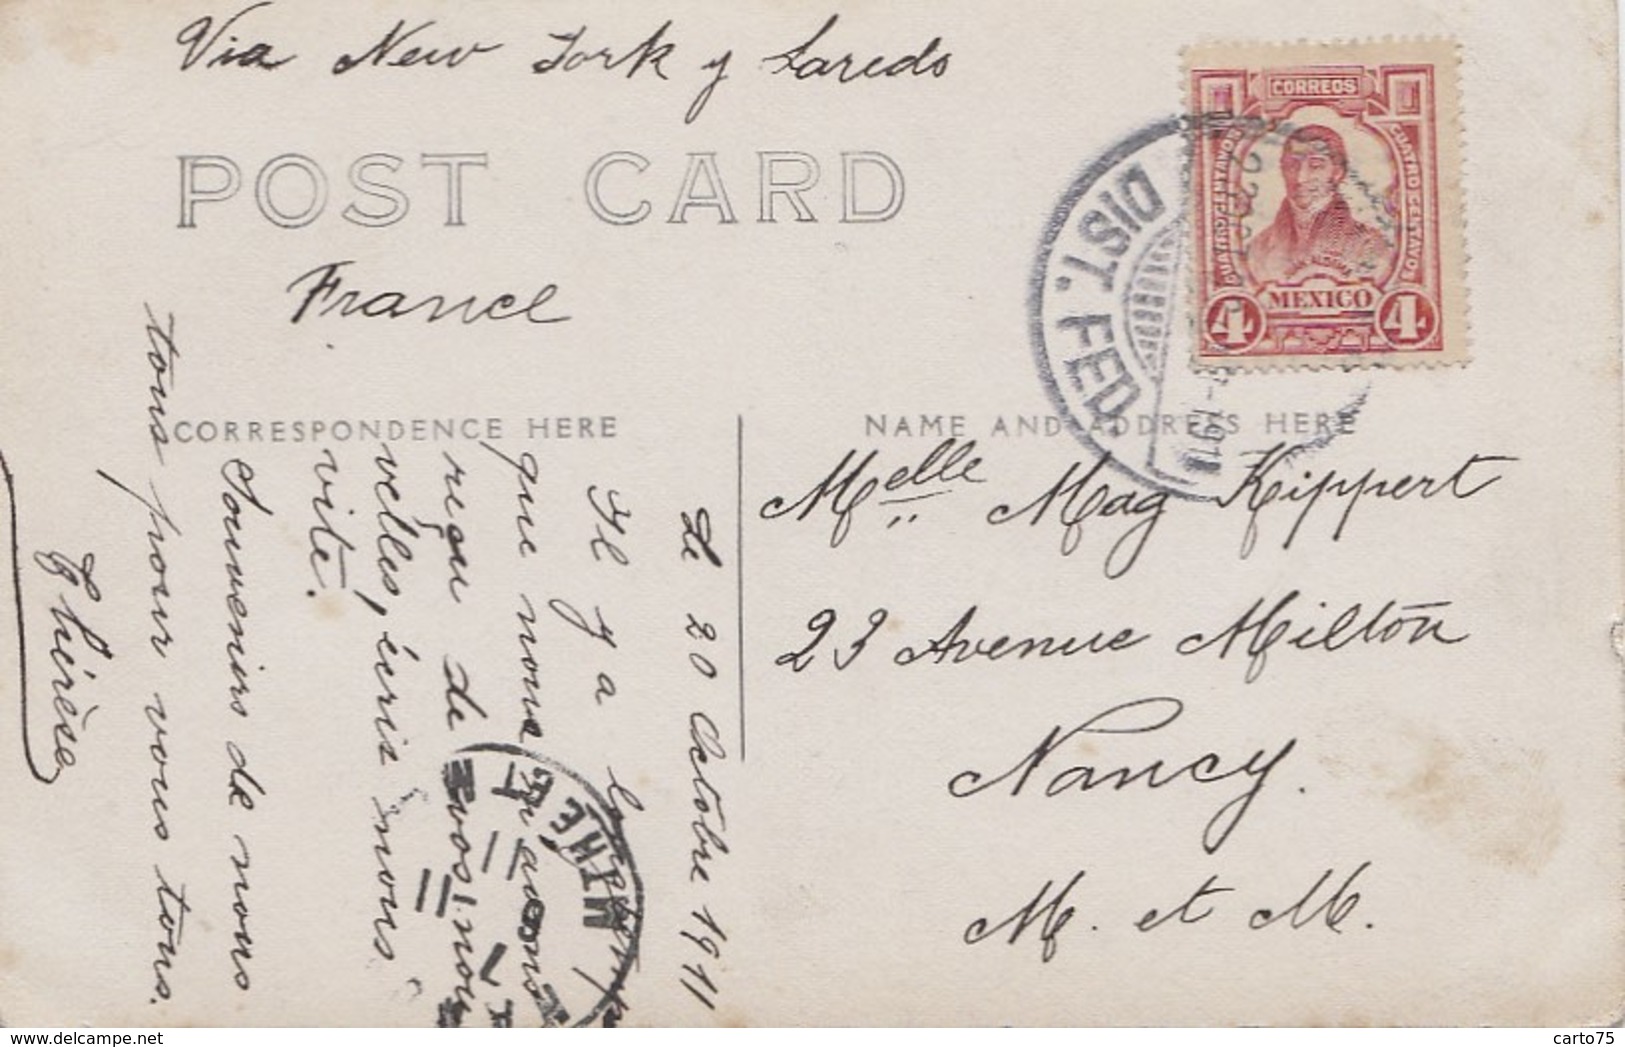 Via New York y Laredo
POST CARD
France
CORREOS
CUATRO CENTAVOS
CUATRO CENTAVOS
MEXICO
4
4
DIST. FED.
CORRESPONDENCE HERE
NAME AND ADDRESS HERE
Melle Mag Kippert
23 Avenue Milton
Nancy.
M. et M.
Le 20 Octobre 1911
Il y a longtemps
que nous n'avons
reçu de vos nou
velles, écris nous
vite.
Souvenirs de nous
tous pour vous tous.
Thérèse
delcampe.net
carto75